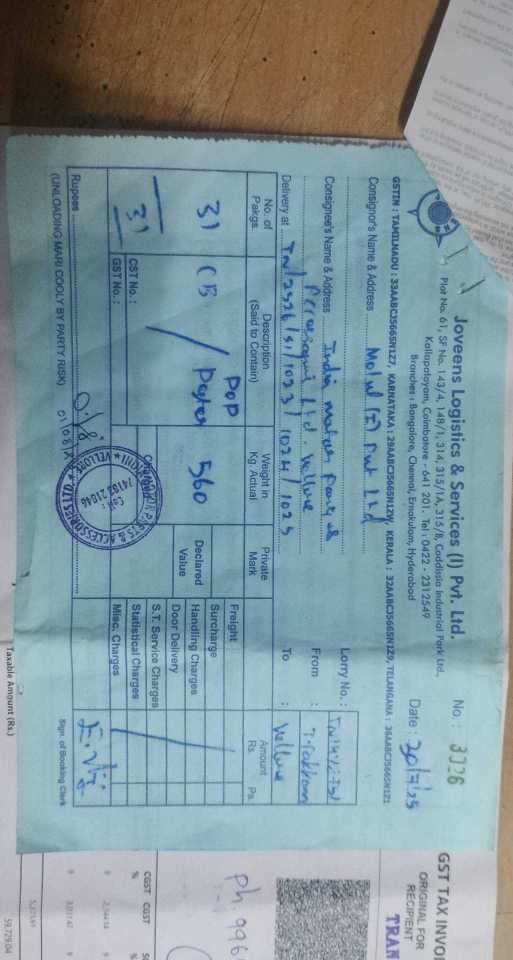 Joveens Logistics & Services (I) Pvt. Ltd.
Plot No. 61, SF No. 143/4, 148/1, 314, 315/1A, 315/8, Coddissia Industrial Park Ltd.,
Kallapalayam, Coimbatore - 641 201. Tel : 0422 - 2312549
Branches : Bangalore, Chennai, Ernakulam, Hyderabad
No. : 3026
Date : 30/7/25
GSTIN : TAMILNADU : 33AABCJ5665N1Z7, KARNATAKA : 29AABCJ5665N1ZW, KERALA : 32AABCJ5665N1Z9, TELANGANA : 36AABCJ5665N1Z1
Consignor's Name & Address Motul (I) Pvt Ltd
Lorry No. :
Consignee's Name & Address India Motor Parts &
Accessories Ltd. Vellore
From :
Delivery at TN/2526/S1/1023/1024/1025
To : Vellore
No. of Pakgs.
Description (Said to Contain)
Weight in Kg. Actual
Private Mark
Amount
Rs. Ps.
31 CB POP Paper 560
31
Declared Value
Freight
Surcharge
Handling Charges
Door Delivery
S.T. Service Charges
Statistical Charges
Misc. Charges
CST No. :
GST No. :
Rupees
(UNLOADING MARI COOLY BY PARTY RISK)
Sign. of Booking Clerk
VELLORE
GST TAX INVOI
ORIGINAL FOR
RECIPIENT
TRAN
ph: 996
CGST CGST
%
Taxable Amount (Rs.)
59,729.04